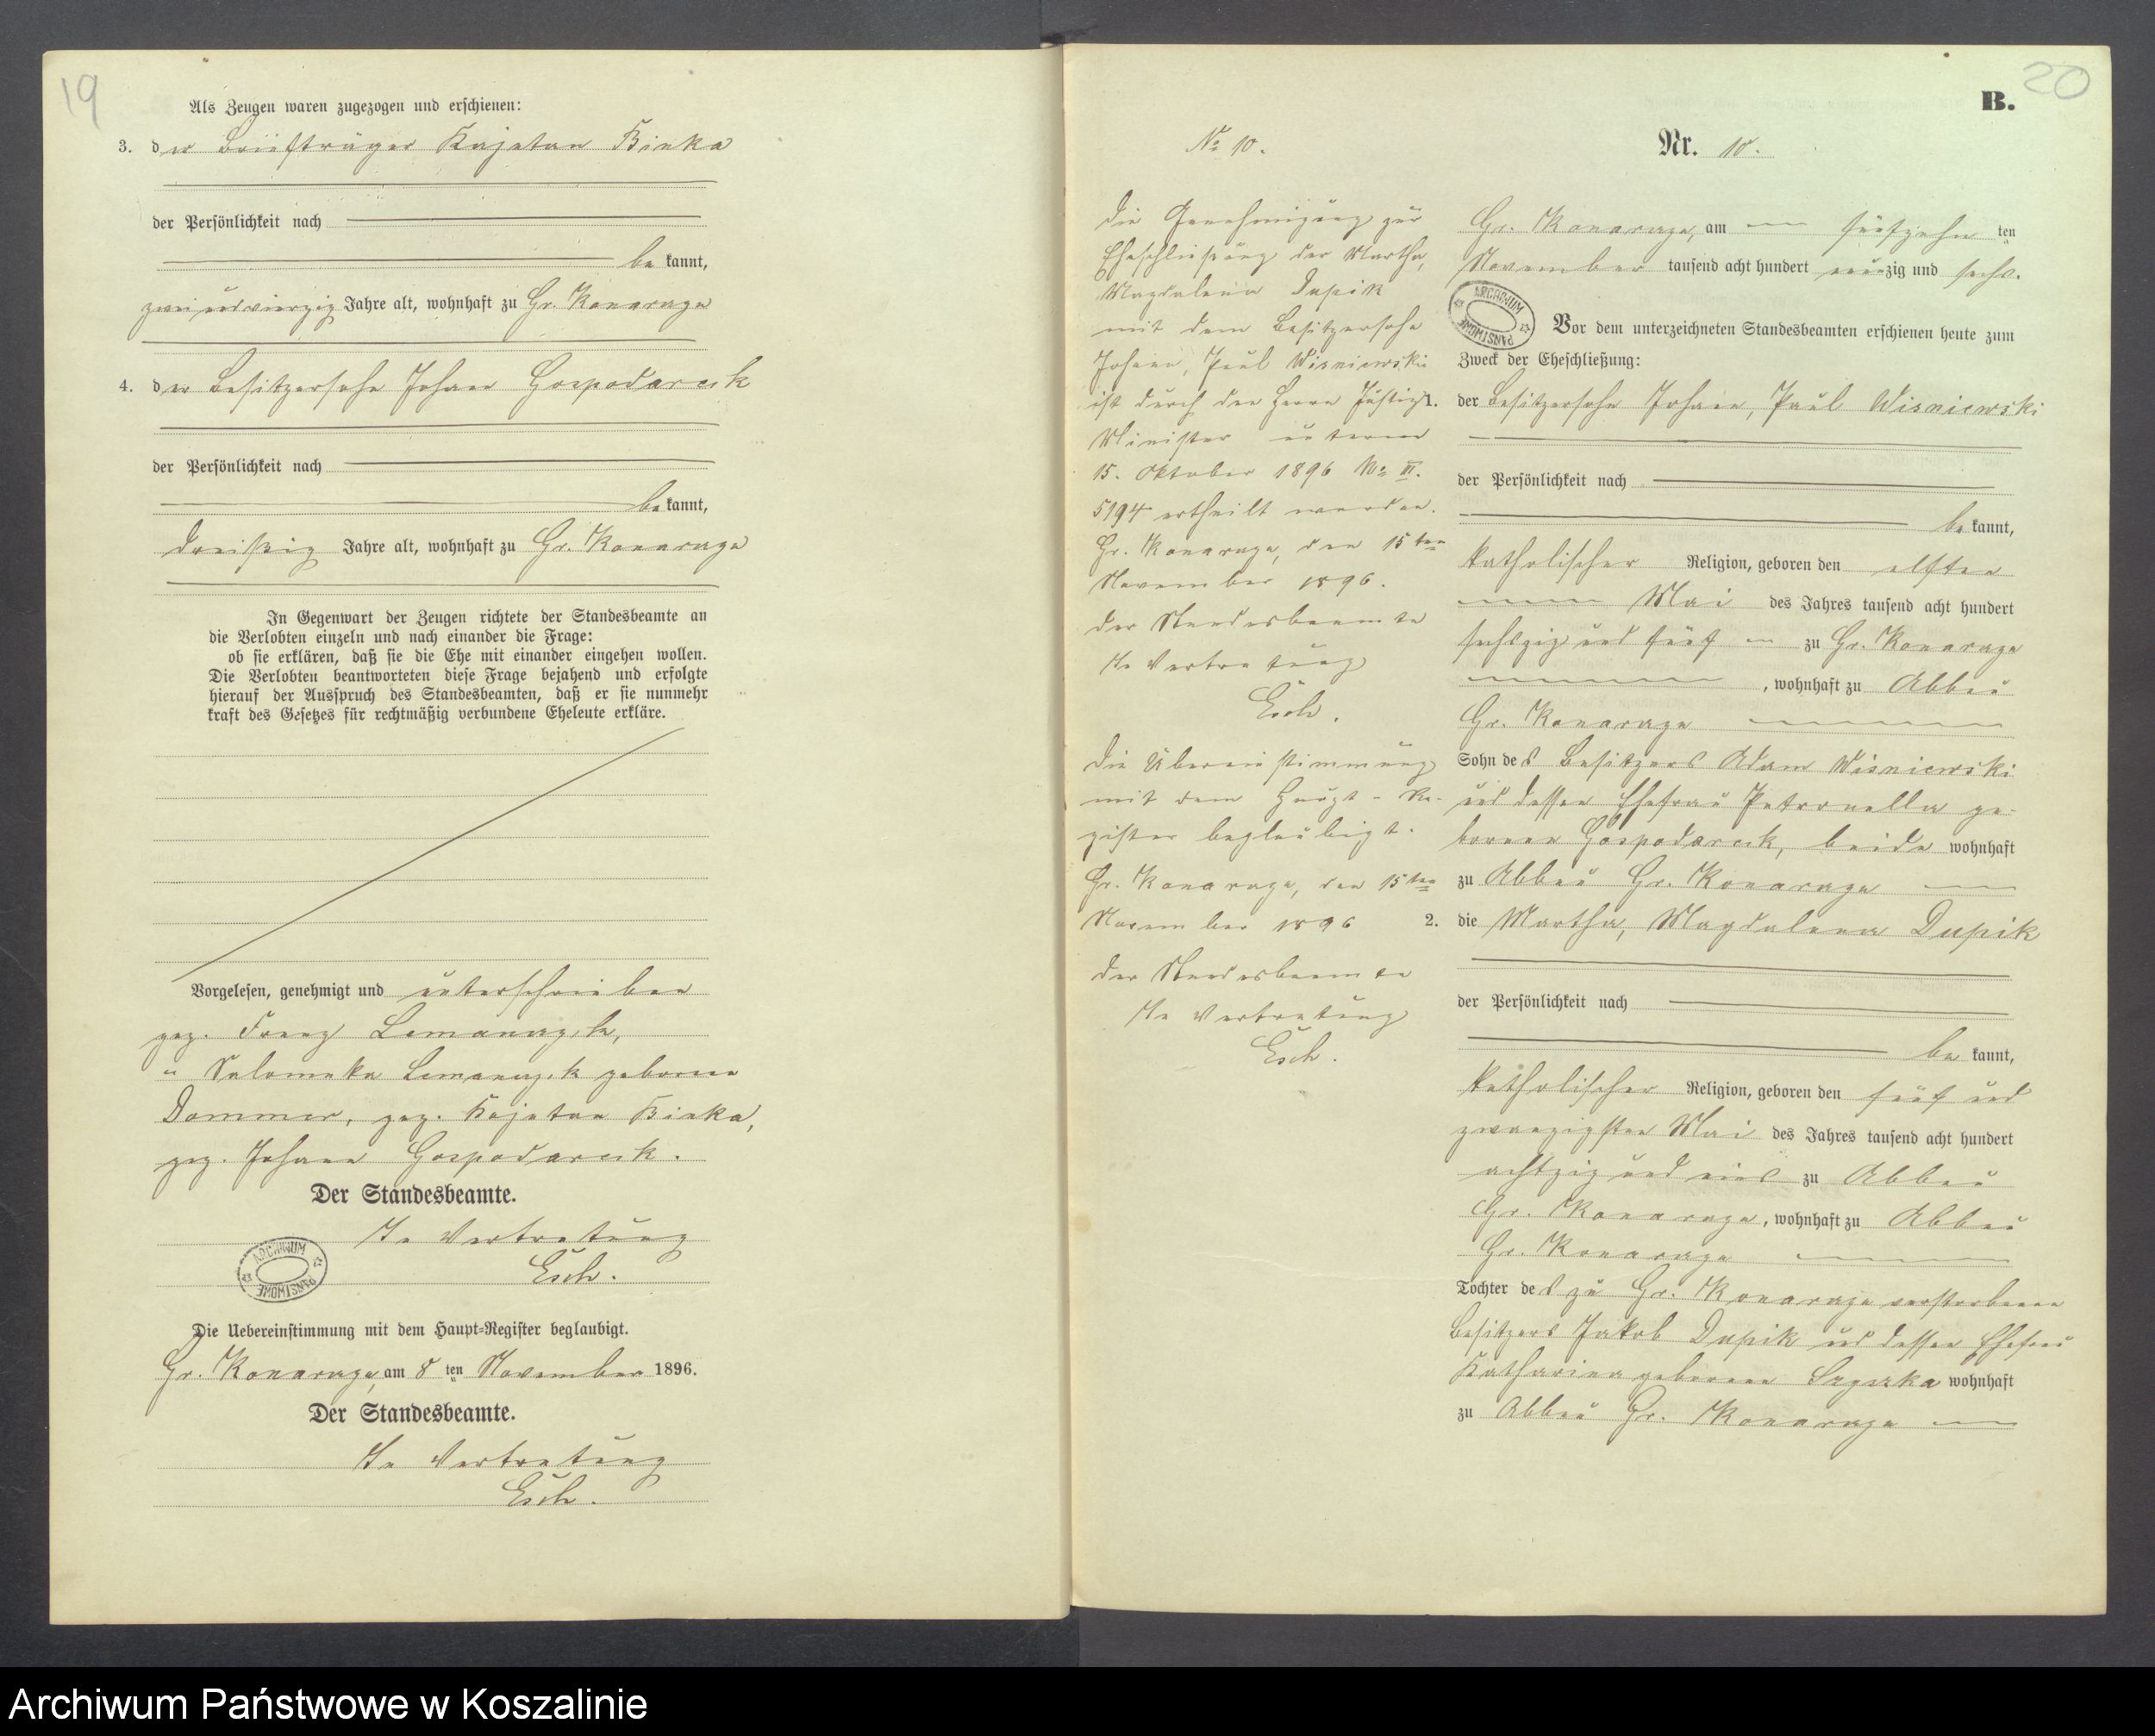 19
Als Zeugen waren zugezogen und erschienen:
3. der Briefträger Kajetan Binka
der Persönlichkeit nach
be kannt,
zweiundvierzig Jahre alt, wohnhaft zu Gr. Konarczyn
4. der Besitzersohn Johann Gospodarek
der Persönlichkeit nach
be kannt,
dreißig Jahre alt, wohnhaft zu Gr. Konarczyn
In Gegenwart der Zeugen richtete der Standesbeamte an
die Verlobten einzeln und nach einander die Frage:
ob sie erklären, daß sie die Ehe mit einander eingehen wollen.
Die Verlobten beantworteten diese Frage bejahend und erfolgte
hierauf der Ausspruch des Standesbeamten, daß er sie nunmehr
kraft des Gesetzes für rechtmäßig verbundene Eheleute erkläre.
Vorgelesen, genehmigt und unterschrieben
gez. Franz
" geborene
Dommer, gez. Kajetan Binka,
gez. Johann Gospodarek.
Der Standesbeamte.
In Vertretung
Esch.
ARCHIWUM PAŃSTWOWE
Die Uebereinstimmung mit dem Haupt-Register beglaubigt.
am 8 ten November 1896.
Der Standesbeamte.
In Vertretung
Esch.
20
B.
No 10.
Die Genehmigung zur
Eheschließung der Martha,
Magdalena Dupik
mit dem Besitzersohn
Johann, Paul Wisniewski
ist durch den Herrn Justiz
Minister unterm
15. Oktober 1896 No III.
5194 ertheilt worden.
den 15 ten
November 1896.
Der Standesbeamte
In Vertretung
Esch.
Die Übereinstimmung
mit dem Haupt-Re-
gister beglaubigt.
den 15 ten
November 1896
Der Standesbeamte
In Vertretung
Esch.
Nr. 10.
am fünfzehn ten
November tausend acht hundert neunzig und sechs.
ARCHIWUM PAŃSTWOWE
Vor dem unterzeichneten Standesbeamten erschienen heute zum
Zweck der Eheschließung:
1. der Besitzersohn Johann, Paul Wisniewski
der Persönlichkeit nach
be kannt,
katholischer Religion, geboren den elften
Mai des Jahres tausend acht hundert
sechszig und fünf zu
, wohnhaft zu Abbau
Sohn des Besitzers Adam Wisniewski
und dessen Ehefrau Petronella ge-
borenen Gospodarek, beide wohnhaft
zu Abbau
2. die Martha, Magdalena Dupik
der Persönlichkeit nach
be kannt,
katholischer Religion, geboren den fünf und
zwanzigsten Mai des Jahres tausend acht hundert
achtzig und eins zu Abbau
, wohnhaft zu Abbau
Tochter des zu verstorbenen
Besitzers Jakob Dupik und dessen Ehefrau
Katharina geborenen wohnhaft
zu Abbau
Archiwum Państwowe w Koszalinie